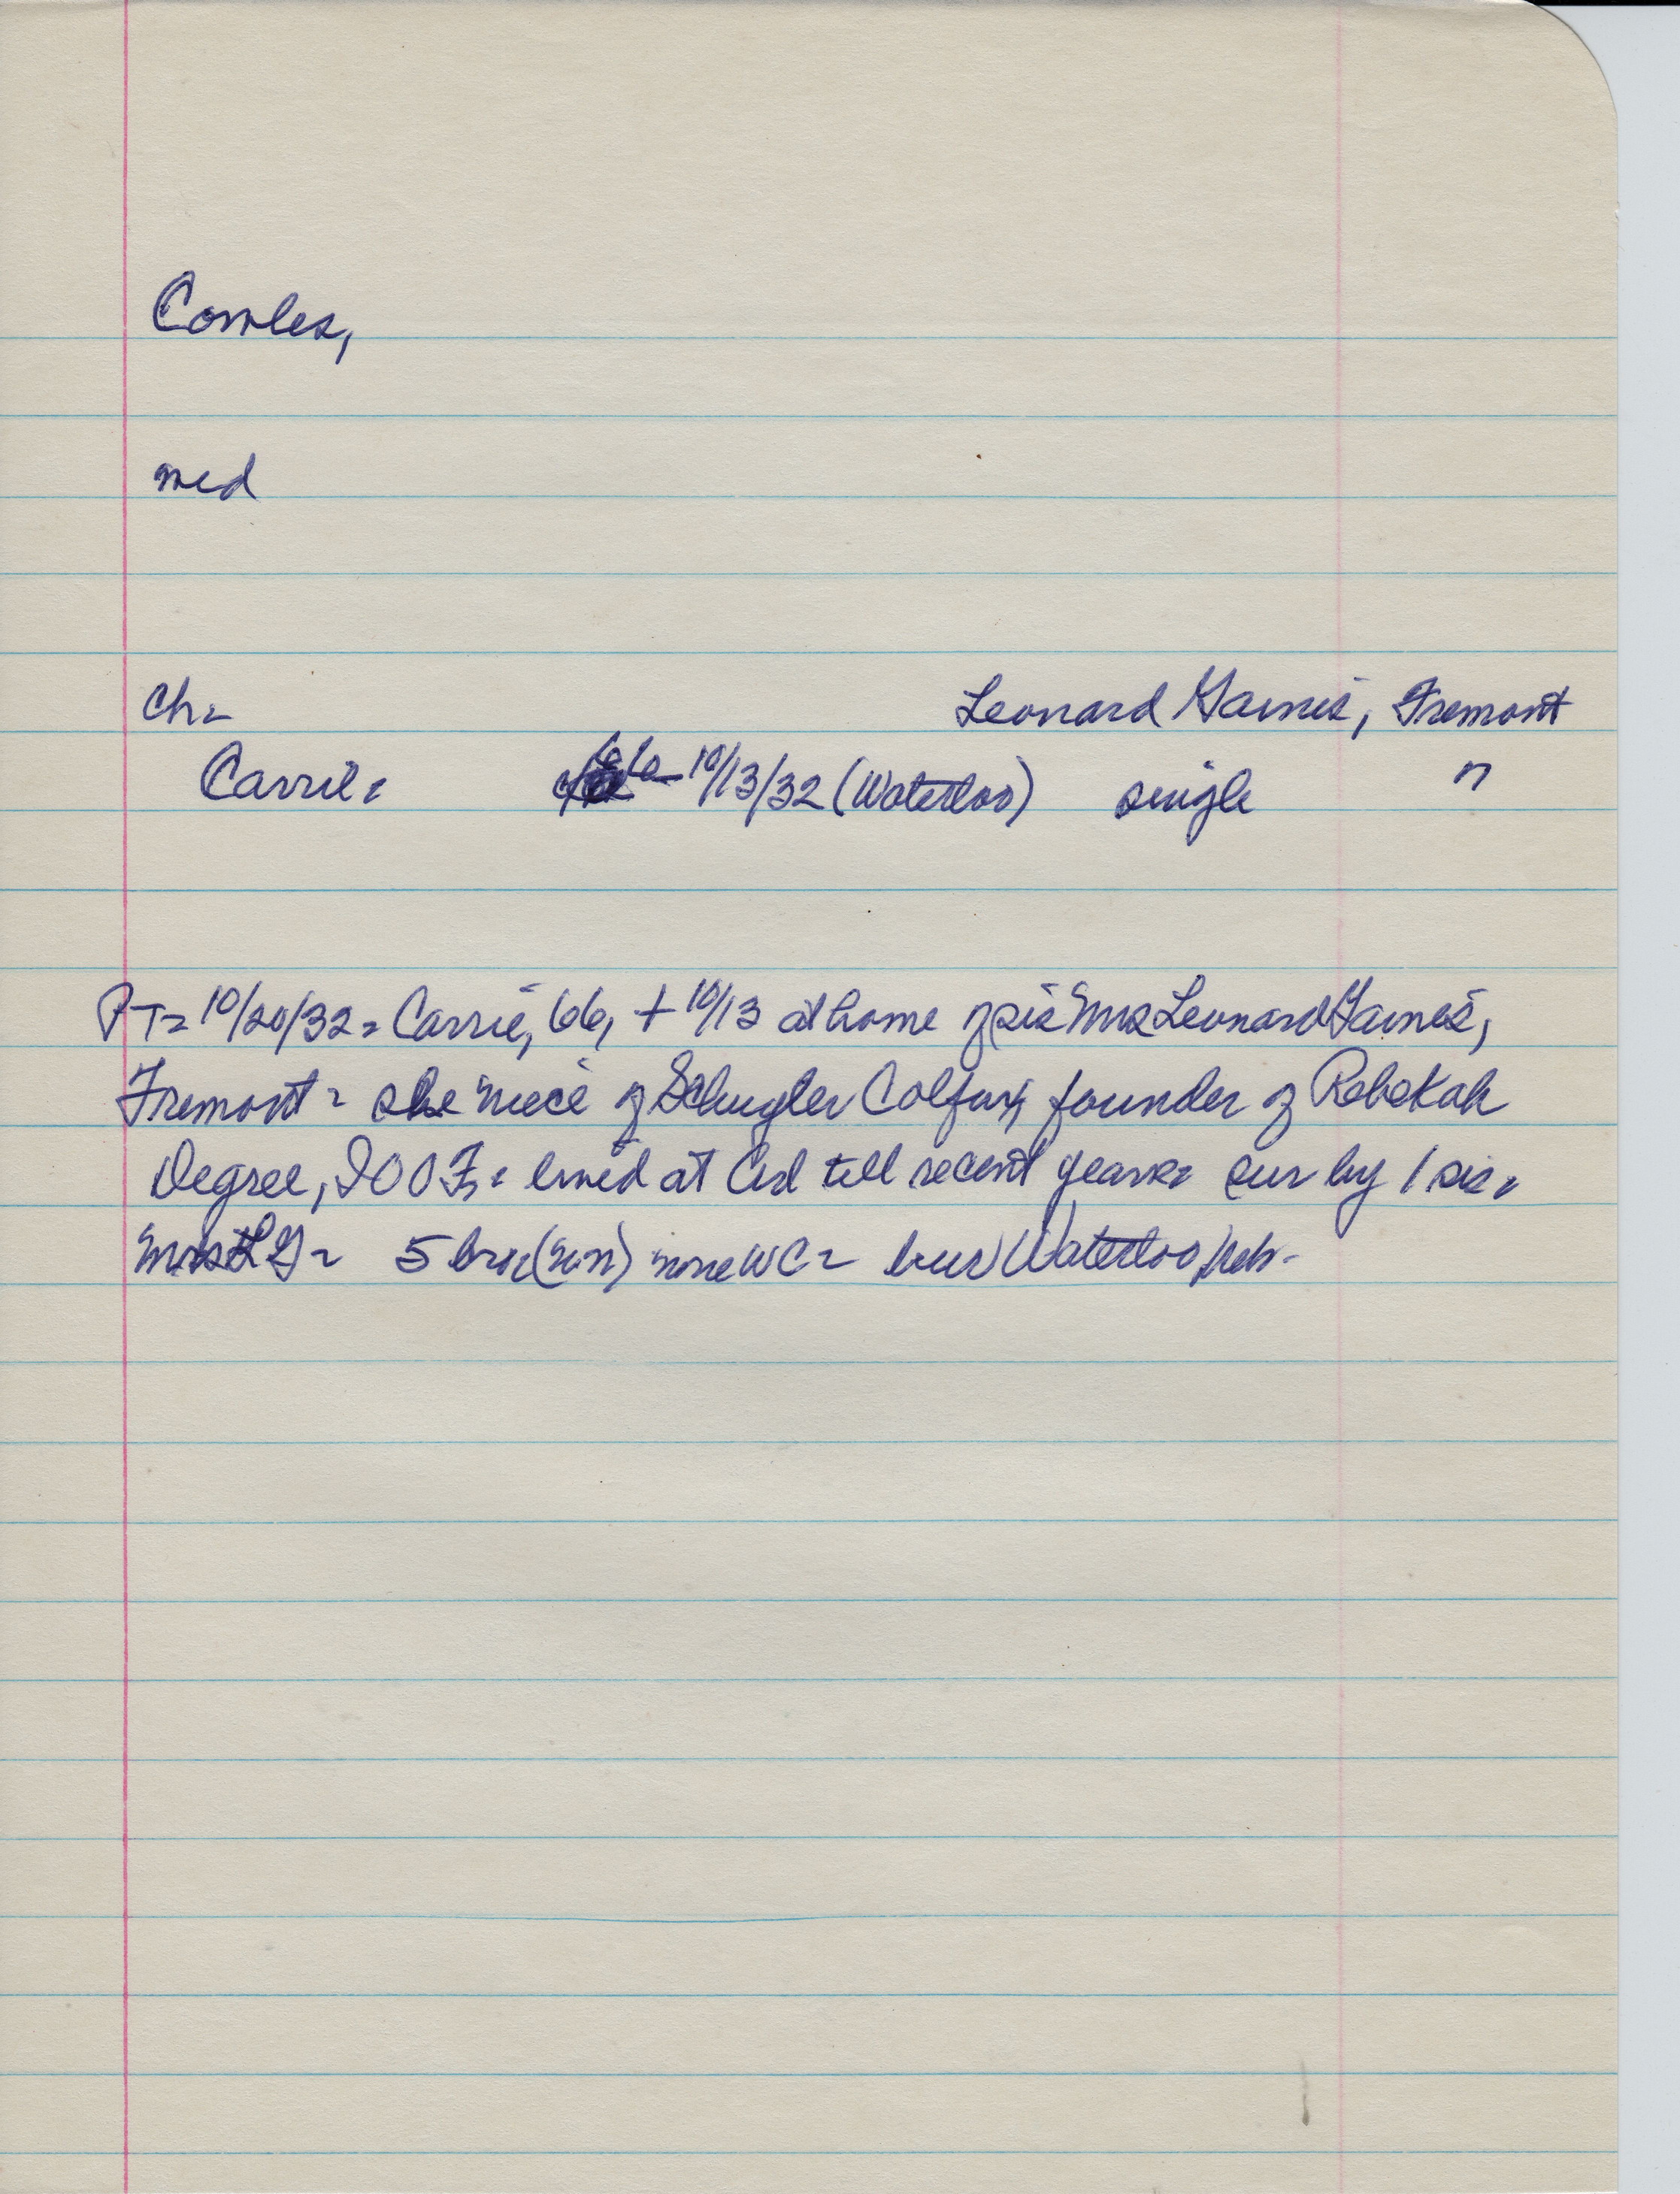 Cowles,
med
Ch=
Leonard Garnes, Fremont
Carrie= c/66 - 10/13/32 (Waterloo) single "
PT= 10/20/32= Carrie, 66, + 10/13 at home of sis Mrs Leonard Garnes,
Fremont= she niece of Schuyler Colfax, founder of Rebekah
Degree, IOOF,= lived at Arl till recent years= sur by 1 sis=
Mrs L G= 5 bros (nn) none WC= bur Waterloo, Neb-